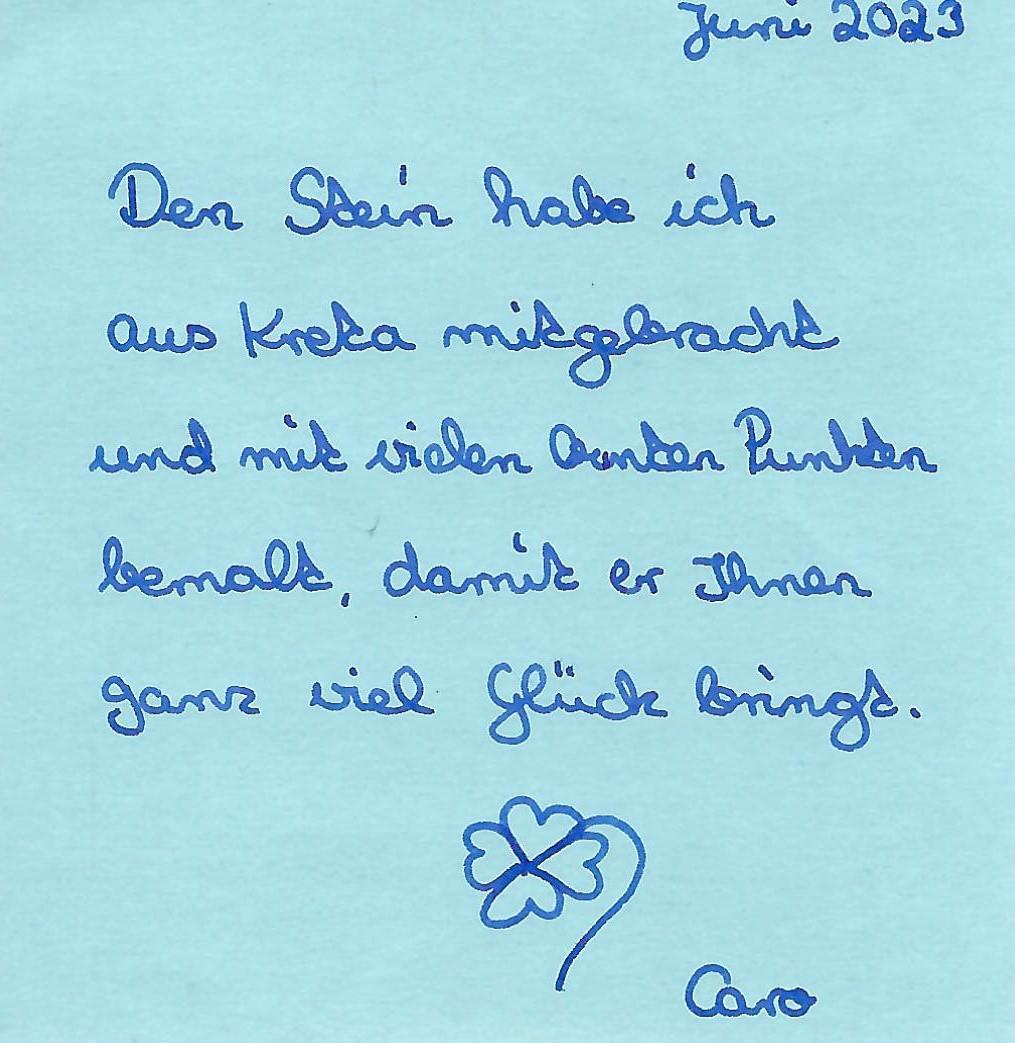 Juni 2023
Den Stein habe ich
aus Kreta mitgebracht
und mit vielen bunten Punkten
bemalt, damit er Ihnen
ganz viel Glück bringt.
Caro